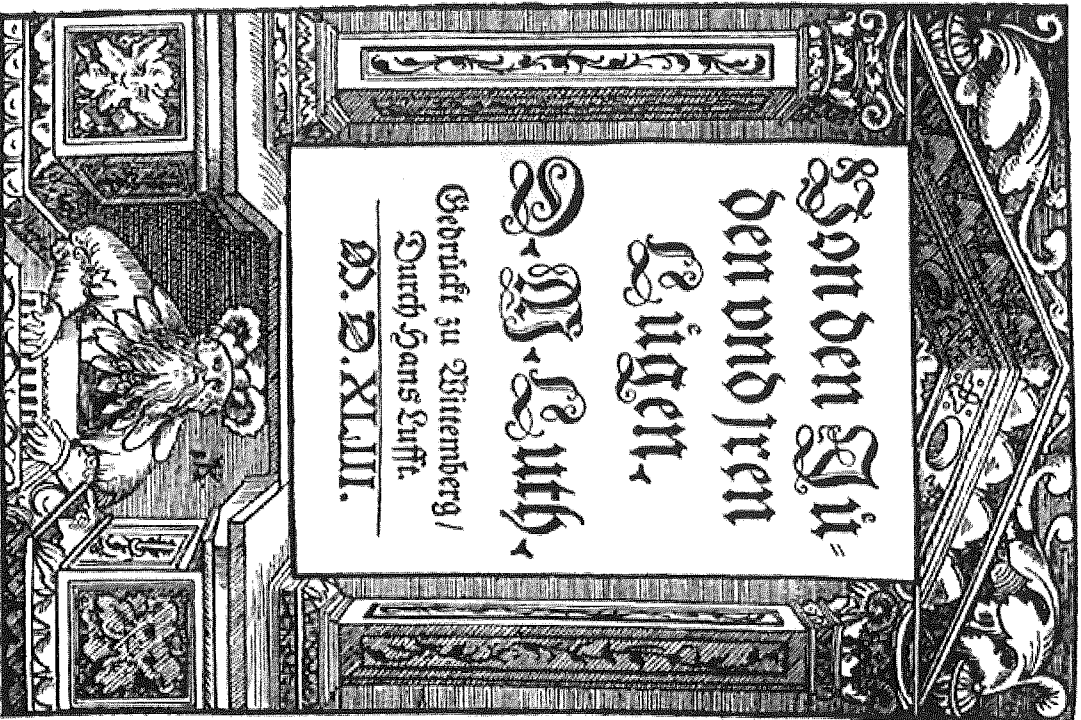 Von den Jü⸗
den vnd jren
Lügen.
D. M. Luth.
Gedrückt zu Wittemberg/
Durch Hans Lufft.
M. D. XLIII.